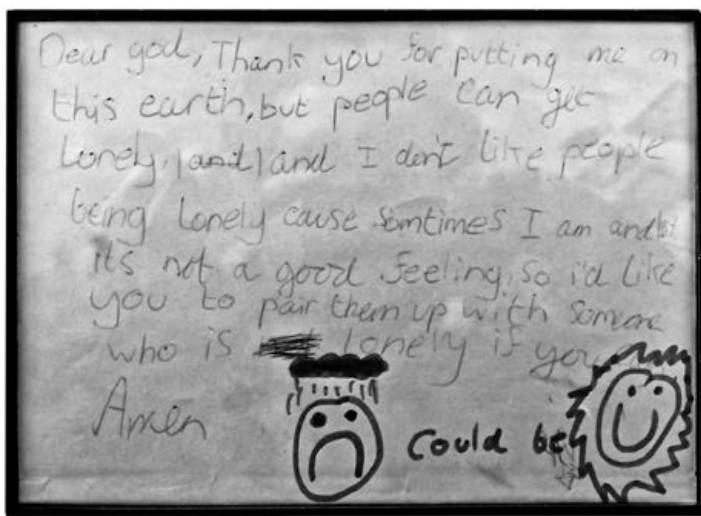 Dear god, Thank you for putting me on
this earth, but people can get
Lonely, and I don't like people
being Lonely cause somtimes I am and
it's not a good feeling, so i'd Like
you to pair them up with someone
who is lonely if you
Amen
could be